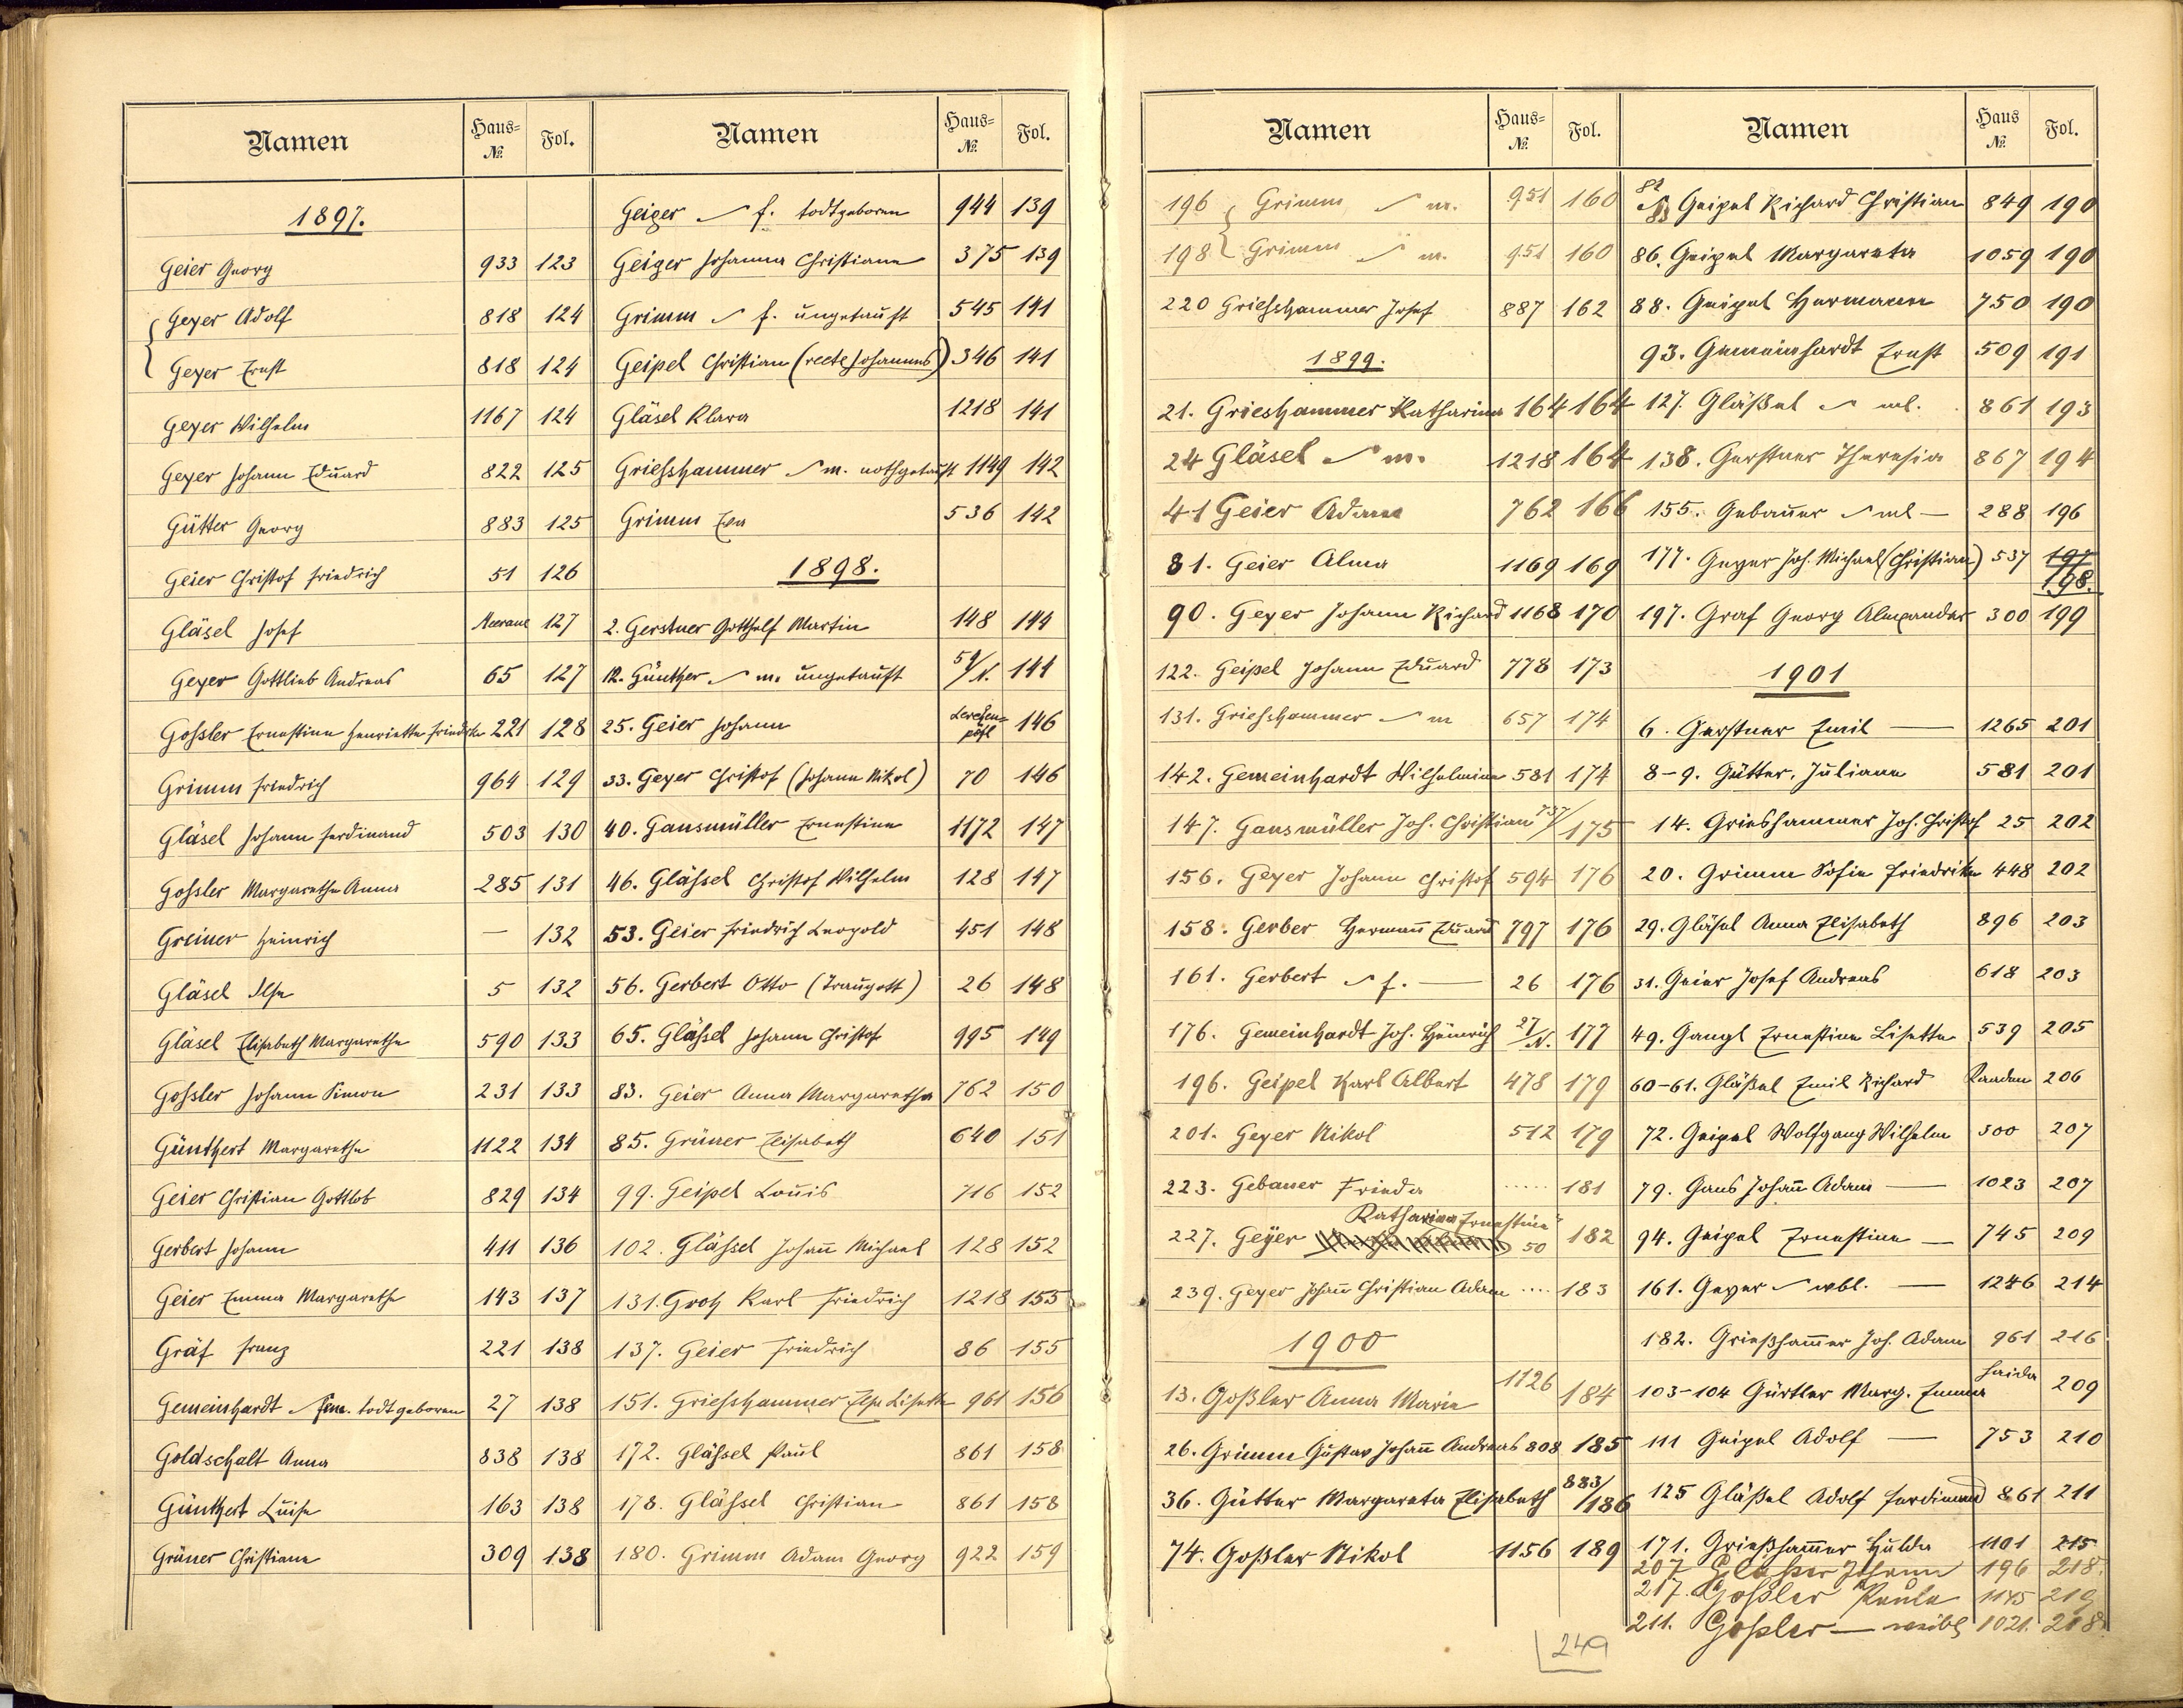 Namen Haus-№ Fol.
1897.
Geier Georg 933 123
Geyer Adolf 818 124
Geyer Ernst 818 124
Geyer Wilhelm 1167 124
Geyer Johann Eduard 822 125
Gütter Georg 883 125
Geier Christof Friedrich 51 126
Gläsel Josef Neerane 127
Geyer Gottlieb Andreas 65 127
Gossler Ernestine Henriette Friedrike 221 128
Grimm Friedrich 964 129
Gläsel Johann Ferdinand 503 130
Gossler Margarethe Anna 285 131
Greiner Heinrich — 132
Gläsel Ilse 5 132
Gläsel Elisabeth Margarethe 590 133
Gossler Johann Simon 231 133
Günthert Margarethe 1122 134
Geier Christian Gottlob 829 134
Gerbert Johann 411 136
Geier Emma Margarethe 143 137
Gräf Franz 221 138
Gemeinhardt fem. todtgeboren 27 138
Goldschalt Anna 838 138
Günthert Luise 163 138
Grüner Christiane 309 138
Namen Haus-№ Fol.
Geiger f. todtgeboren 944 139
Geiger Johanna Christiane 375 139
Grimm f. ungetauft 545 141
Geipel Christian (recte Johannes) 346 141
Gläsel Klara 1218 141
Griesshammer m. nothgetauft 1149 142
Grimm Eva 536 142
1898.
2. Gerstner Gotthelf Martin 148 144
12. Günther m. ungetauft 54/N. 144
25. Geier Johann Lerchenpöhl 146
33. Geyer Christof (Johann Nikol) 70 146
40. Gansmüller Ernestine 1172 147
46. Glässel Christof Wilhelm 128 147
53. Geier Friedrich Leopold 451 148
56. Gerbert Otto (Traugott) 26 148
65. Glässel Johann Christof 995 149
83. Geier Anna Margaretha 762 150
85. Grüner Elisabeth 640 151
99. Geipel Louis 716 152
102. Glässel Johañ Michael 128 152
131. Grotz Karl Friedrich 1218 155
137. Geier Friedrich 86 155
151. Griesshammer Else Lisette 961 156
172. Glässel Paul 861 158
178. Glässel Christian 861 158
180. Grimm Adam Georg 922 159
Namen Haus-№ Fol.
196 Grimm m. 951 160
198 Grimm m. 951 160
220 Griesshammer Josef 887 162
1899.
21. Grieshammer Katharina 164 164
24 Gläsel m. 1218 164
41 Geier Adam 762 166
81. Geier Alma 1169 169
90. Geyer Johann Richard 1168 170
122. Geipel Johann Eduard 778 173
131. Griesshammer m 657 174
142. Gemeinhardt Wilhelmine 581 174
147. Gansmüller Joh. Christian 737/175
156. Geyer Johann Christof 594 176
158. Gerber Hermañ Eduard 797 176
161. Gerbert f. — 26 176
176. Gemeinhardt Joh. Heinrich 27/N. 177
196. Geipel Karl Albert 478 179
201. Geyer Nikol 512 179
223. Gebauer Frieda ..... 181
Katharina Ernestine
227. Geyer 50 182
239. Geyer Johañ Christian Adam .... 183
1900
13. Goßler Anna Marie 1126 184
26. Grimm Gustav Johañ Andreas 808 185
36. Gütter Margareta Elisabeth 883/186
74. Goßler Nikol 1156 189
Namen Haus № Fol.
82 Geipel Richard Christian 849 190
86. Geipel Margareta 1059 190
88. Geipel Hermann 750 190
93. Gemeinhardt Ernst 509 191
127. Gläßel ml. 861 193
138. Gerstner Theresia 867 194
155. Gebauer ml — 288 196
177. Geyer Joh. Michael (Christian) 537 197 198.
197. Graf Georg Alexander 300 199
1901
6. Gerstner Emil — 1265 201
8-9. Gütter, Juliane 581 201
14. Grieshammer Joh. Christof 25 202
20. Grimm Sofie Friedrike 448 202
29. Gläsel Anna Elisabeth 896 203
31. Geier Josef Andreas 618 203
49. Gangl Ernestine Lisette 539 205
60-61. Gläßel Emil Richard Kaaden 206
72. Geipel Wolfgang Wilhelm 300 207
79. Gans Johañ Adam — 1023 207
94. Geipel Ernestine — 745 209
161. Geyer wbl. — 1246 214
182. Grießham̄er Joh. Adam 961 216
103-104 Gürtler Marg. Emma Haida 209
111 Geipel Adolf — 753 210
125 Gläßel Adolf Ferdinand 861 211
171. Grießham̄er Hulda 1101 215
207 196 218.
217. Goßler Paula 1145 219
211. Goßler — weibl. 1021. 218
249